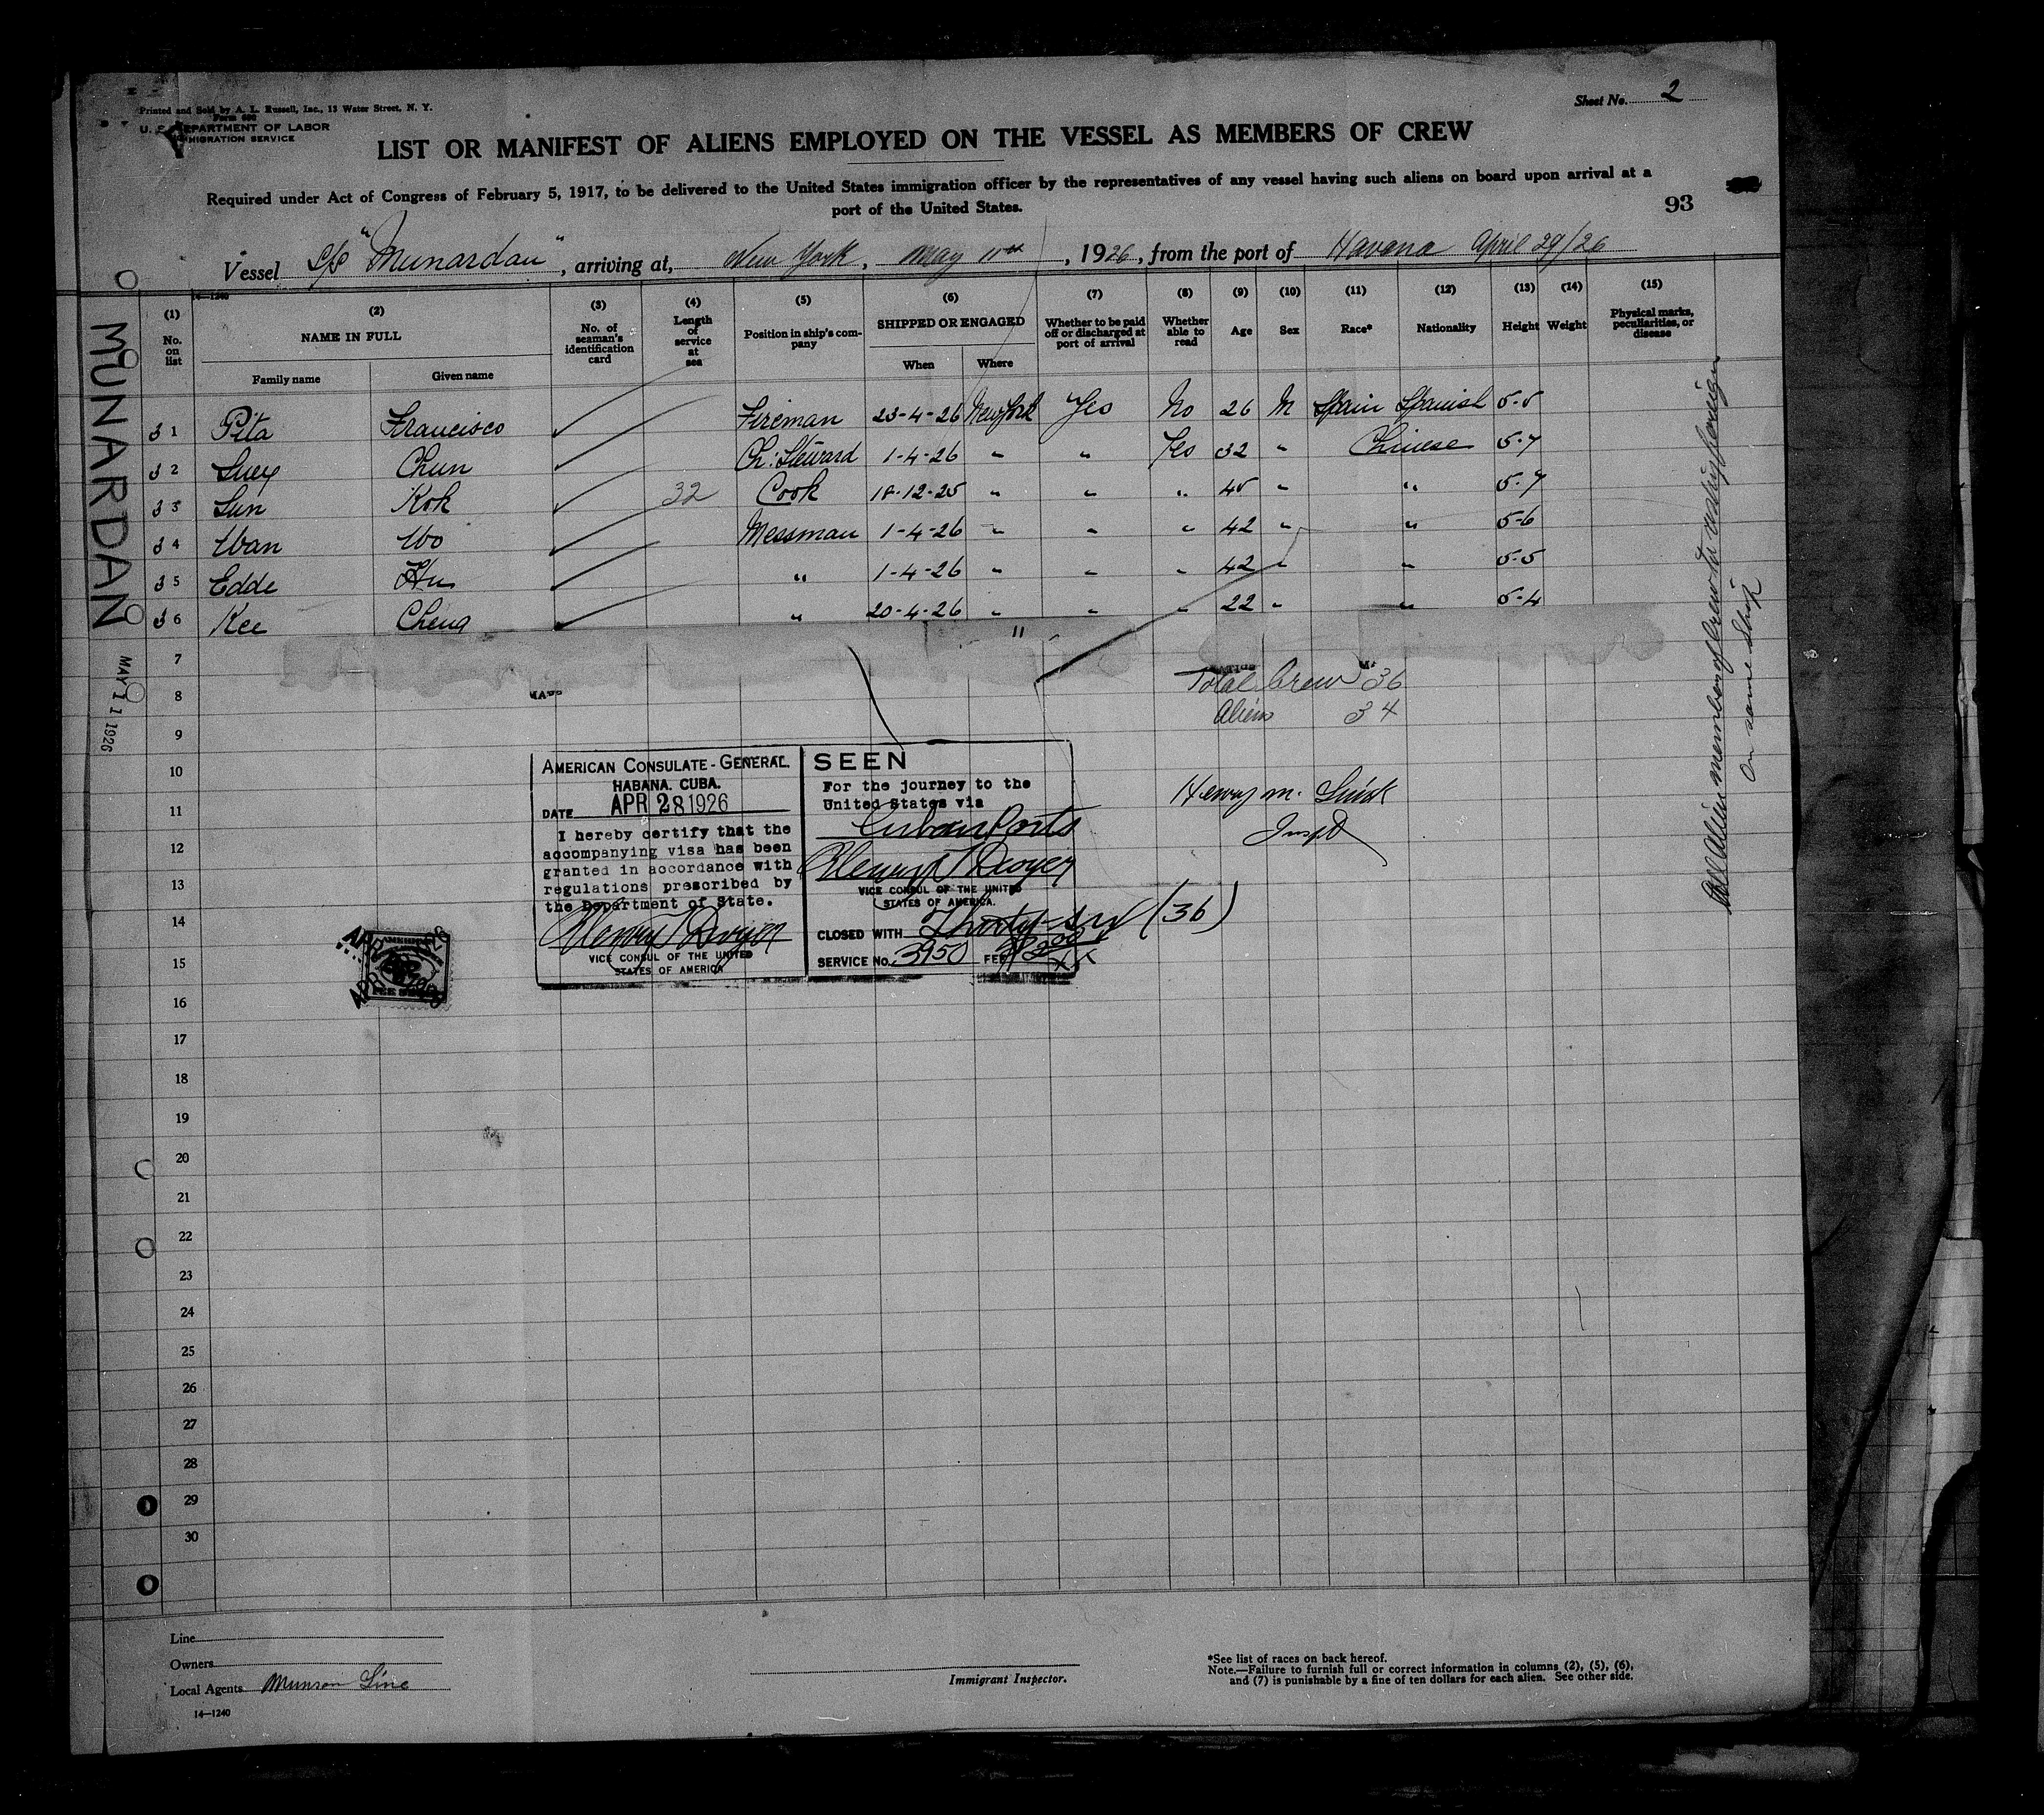 Printed and Sold by A. L. Russell, Inc., 13 Water Street, N. Y.
Form 680
U. S. DEPARTMENT OF LABOR
IMMIGRATION SERVICE
Sheet No. 2
LIST OR MANIFEST OF ALIENS EMPLOYED ON THE VESSEL AS MEMBERS OF CREW
Required under Act of Congress of February 5, 1917, to be delivered to the United States immigration officer by the representatives of any vessel having such aliens on board upon arrival at a
port of the United States.
93
Vessel S/S "Munardan", arriving at, New York, May 11th, 1926, from the port of Havana April 29/26
14—1240
(1) No. on list (2) NAME IN FULL Family name Given name (3) No. of seaman's identification card (4) Length of service at sea (5) Position in ship's company (6) SHIPPED OR ENGAGED When Where (7) Whether to be paid off or discharged at port of arrival (8) Whether able to read (9) Age (10) Sex (11) Race* (12) Nationality (13) Height (14) Weight (15) Physical marks, peculiarities, or disease
31 Pita Francisco Fireman 23-4-26 New York Yes No 26 M Spain Spanish 5-5
32 Suey Chun Ch. Steward 1-4-26 " " Yes 32 " Chinese 5-7
33 Sun Kok 32 Cook 18-12-25 " " " 45 " " 5-7
34 Wan Wo Messman 1-4-26 " " " 42 " " 5-6
35 Edde Hu " 1-4-26 " " " 42 " " 5-5
36 Kee Cheng " 20-4-26 " " " 22 " " 5-4
"
7
8
9
10
11
12
13
14
15
16
17
18
19
20
21
22
23
24
25
26
27
28
29
30
MUNARDAN
MAY 11 1926
Total Crew 36
Aliens 34
Henry M.
Inspt
AMERICAN CONSULATE-GENERAL.
HABANA. CUBA.
DATE APR 28 1926
I hereby certify that the
accompanying visa has been
granted in accordance with
regulations prescribed by
the Department of State.
Henry T Dwyer
VICE CONSUL OF THE UNITED
STATES OF AMERICA
SEEN
For the journey to the
United States via
Cuban Ports
Henry T Dwyer
VICE CONSUL OF THE UNITED
STATES OF AMERICA.
CLOSED WITH Thirty-six (36)
SERVICE No. 3950 FEE
All Alien members of Crew to reship foreign
on same ship
Line
Owners
Local Agents Munson Line
14—1240
Immigrant Inspector.
*See list of races on back hereof.
Note.—Failure to furnish full or correct information in columns (2), (5), (6),
and (7) is punishable by a fine of ten dollars for each alien. See other side.